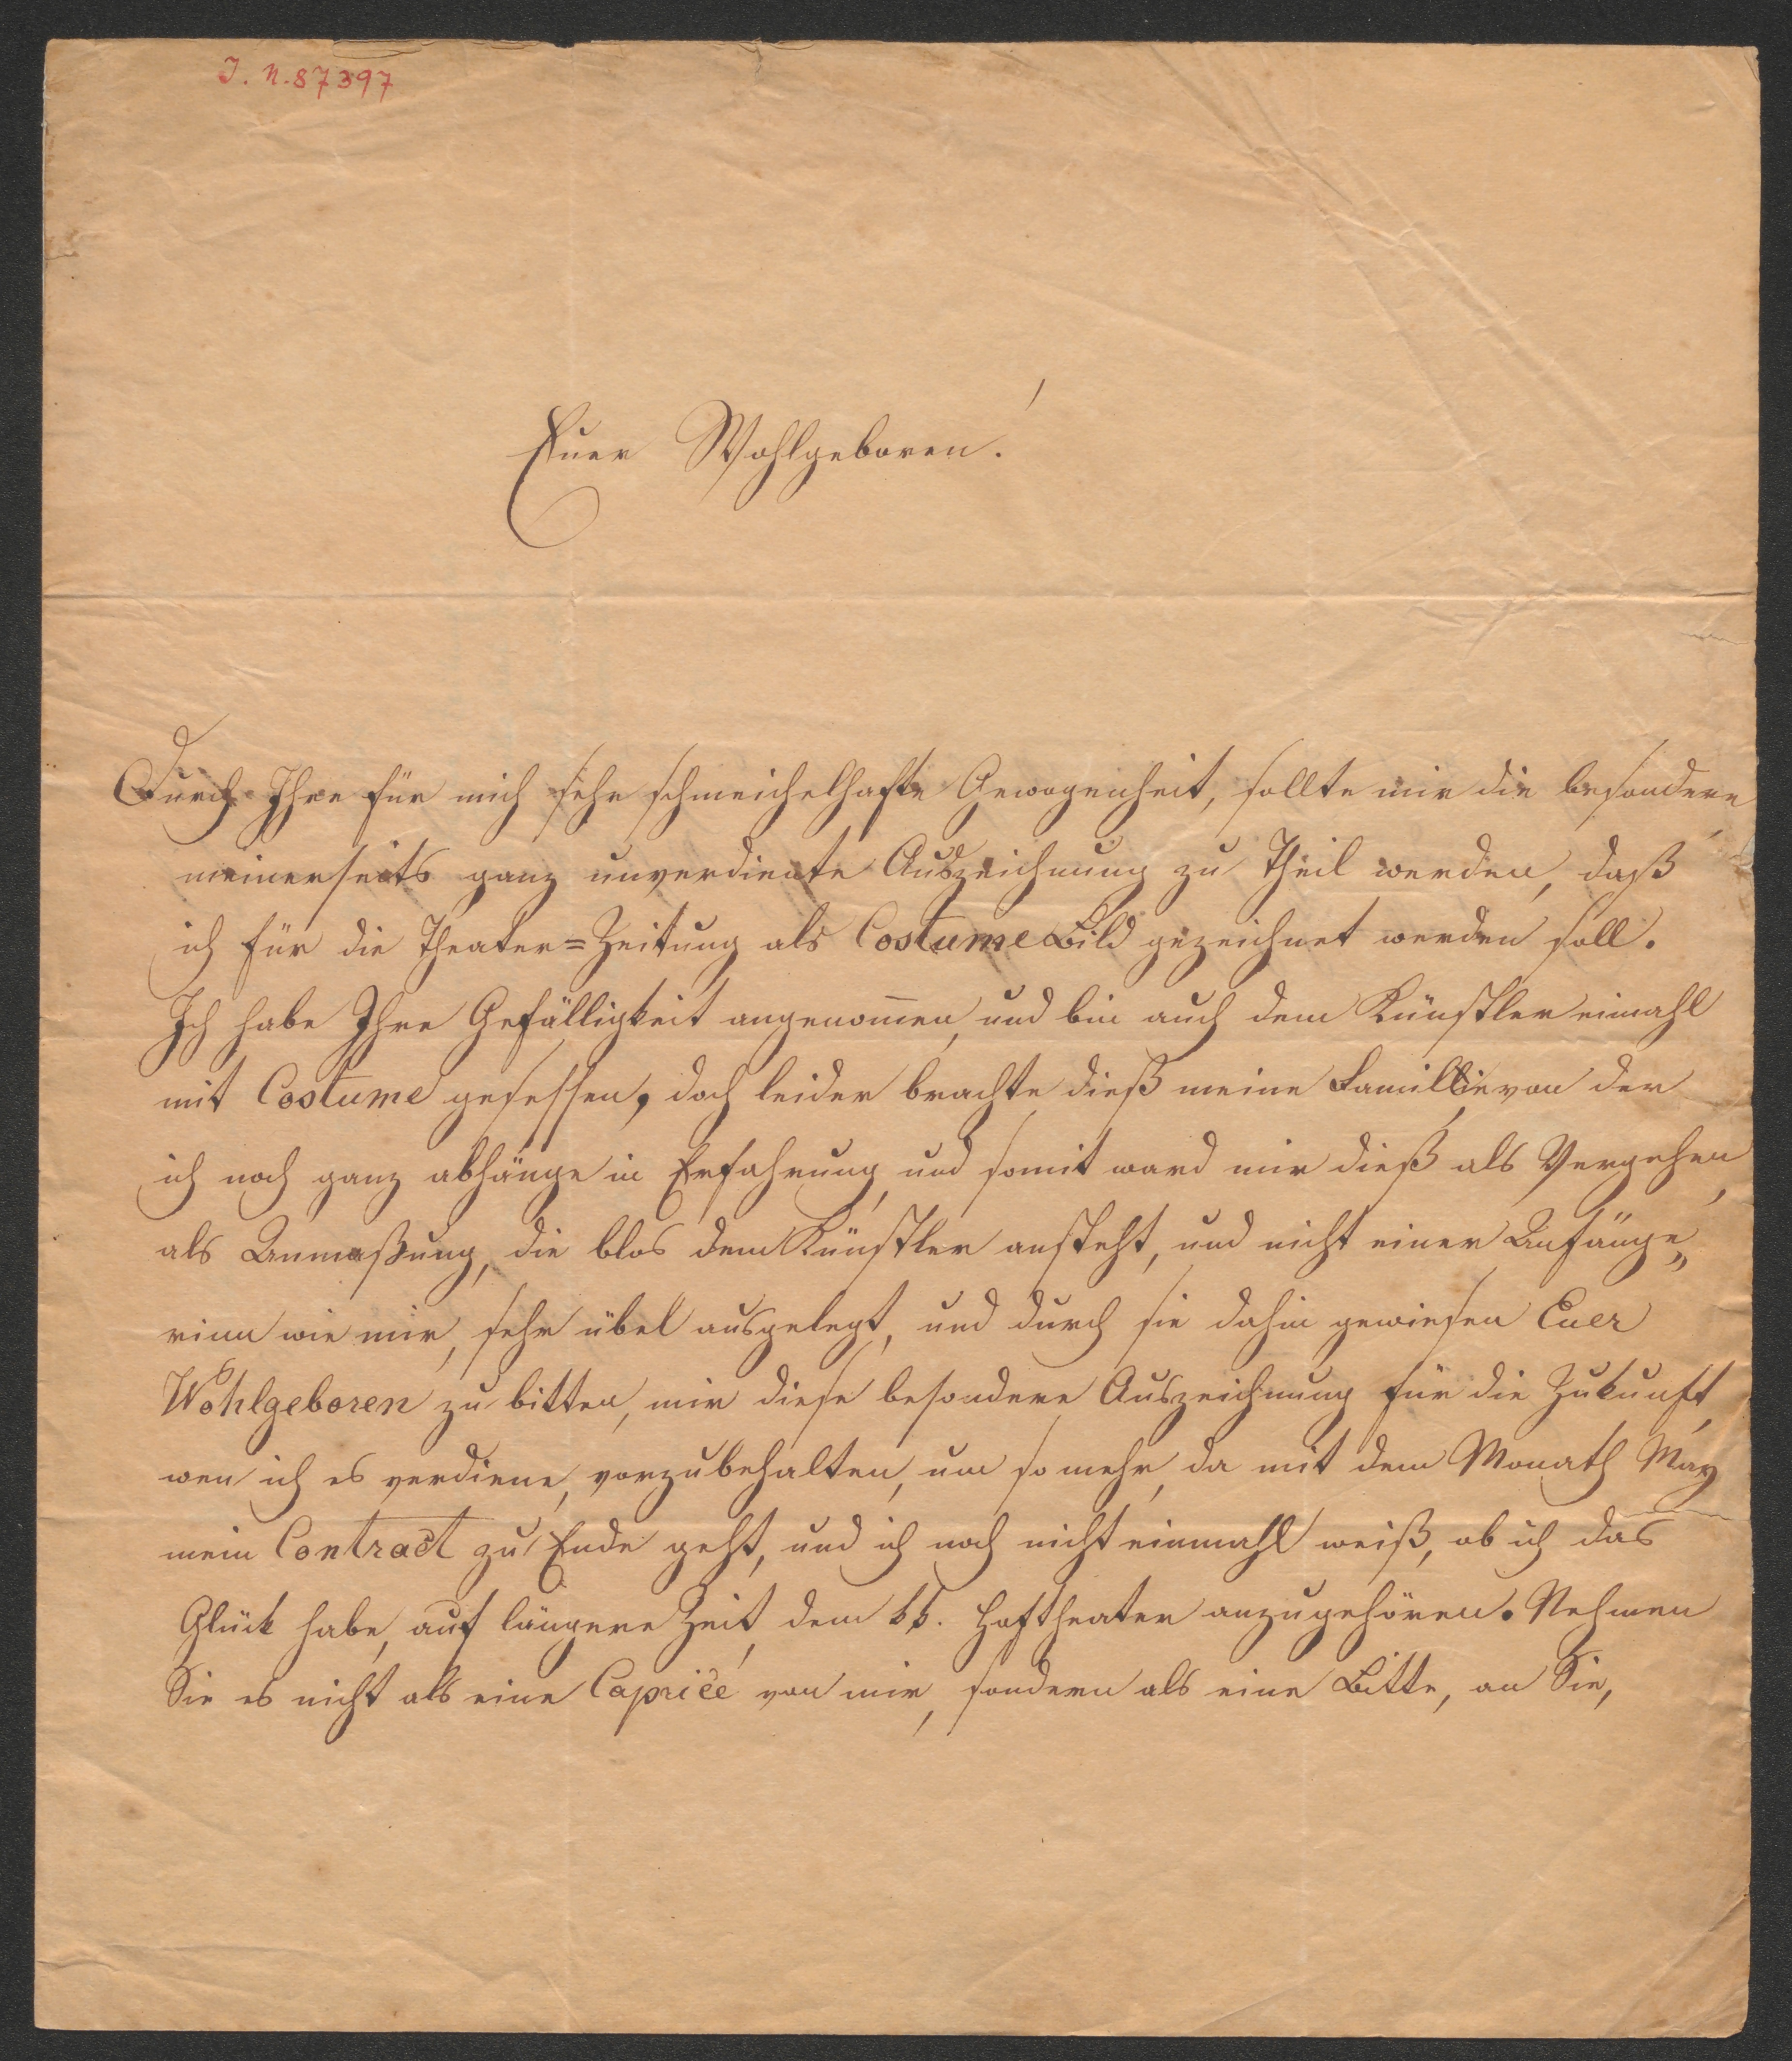 J. N. 87397
Euer Wohlgeboren!
Durch Ihre für mich sehr schmeichelhafte Gewogenheit, sollte mir die besondere,
meinerseits ganz unverdiente Auszeichnung zu Theil werden, daß
ich für die Theater=Zeitung als Costume Bild gezeichnet werden soll.
Ich habe Ihre Gefälligkeit angenom̄en, und bin auch dem Künstler einmahl
mit Costume gesessen, doch leider brachte dieß meine Familie, von der
ich noch ganz abhänge in Erfahrung, und somit ward mir dieß als Vergehen,
als Anmaßung, die blos dem Künstler ansteht, und nicht einer Anfänge„
rinn wie mir, sehr übel ausgelegt, und durch sie dahin gewiesen Euer
Wohlgeboren zu bitten, mir diese besondere Auszeichnung für die Zukunft,
wen ich es verdiene, vorzubehalten, um so mehr, da mit dem Monath May
mein Contract zu Ende geht, und ich noch nicht einmahl weiß, ob ich das
Glück habe, auf längere Zeit, dem kk. Hoftheater anzugehören. Nehmen
Sie es nicht als eine Caprice von mir, sondern als eine Bitte, an Sie,